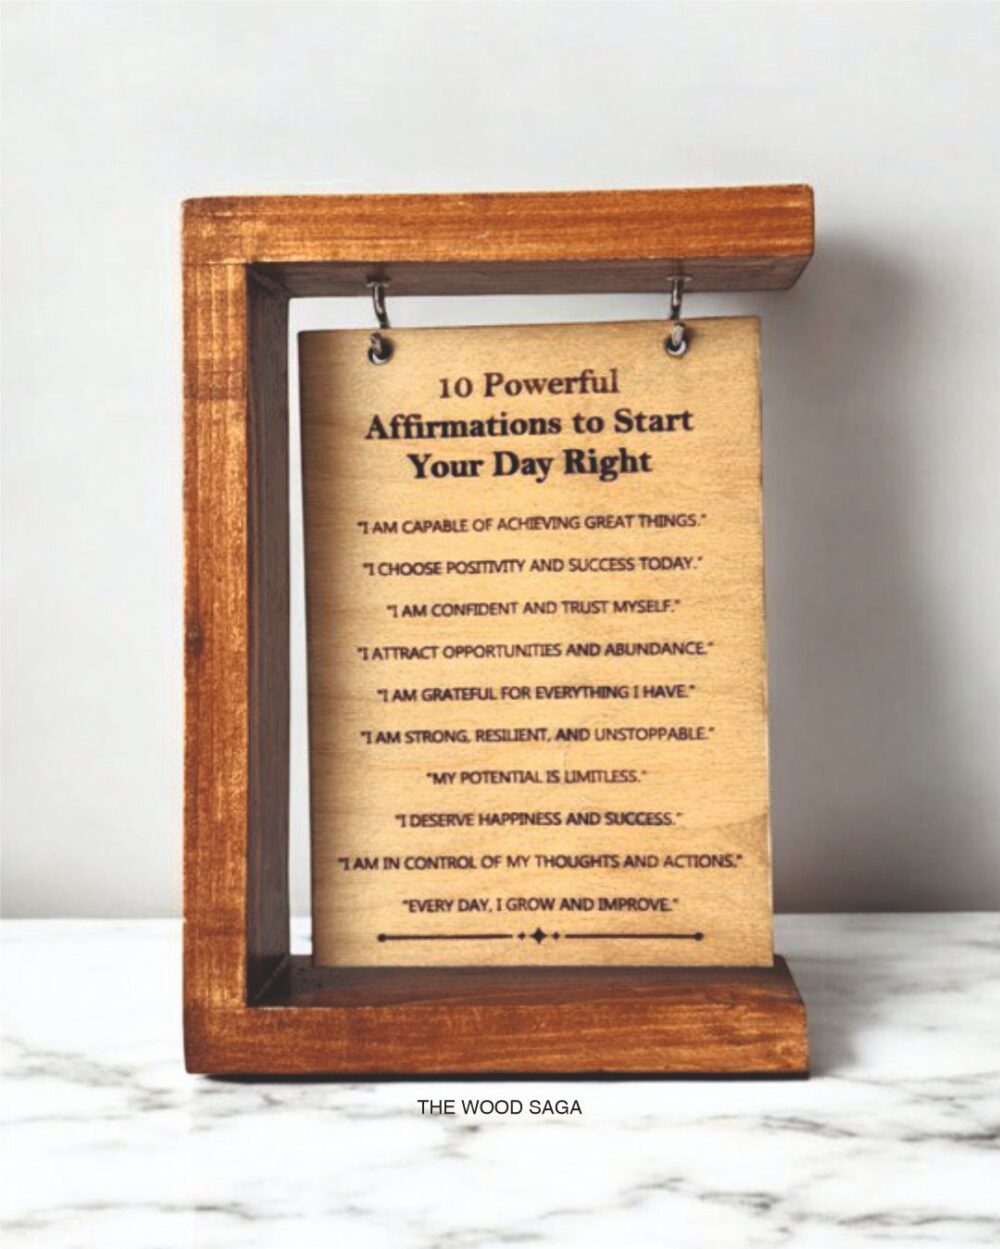 10 Powerful
Affirmations to Start
Your Day Right
"I AM CAPABLE OF ACHIEVING GREAT THINGS."
"I CHOOSE POSITIVITY AND SUCCESS TODAY."
"I AM CONFIDENT AND TRUST MYSELF."
"I ATTRACT OPPORTUNITIES AND ABUNDANCE."
"I AM GRATEFUL FOR EVERYTHING I HAVE."
"I AM STRONG, RESILIENT, AND UNSTOPPABLE."
"MY POTENTIAL IS LIMITLESS."
"I DESERVE HAPPINESS AND SUCCESS."
"I AM IN CONTROL OF MY THOUGHTS AND ACTIONS."
"EVERY DAY, I GROW AND IMPROVE."
THE WOOD SAGA